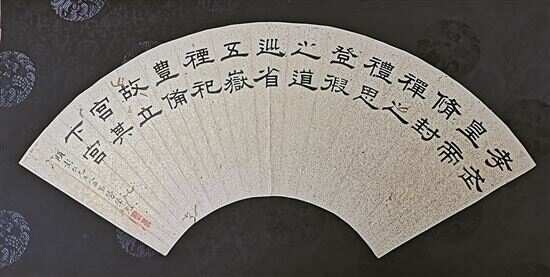 孝武
皇帝
脩封
禪之
禮思
登假
之道
巡省
五嶽
禋祀
豊備
故立
宮其
下宮